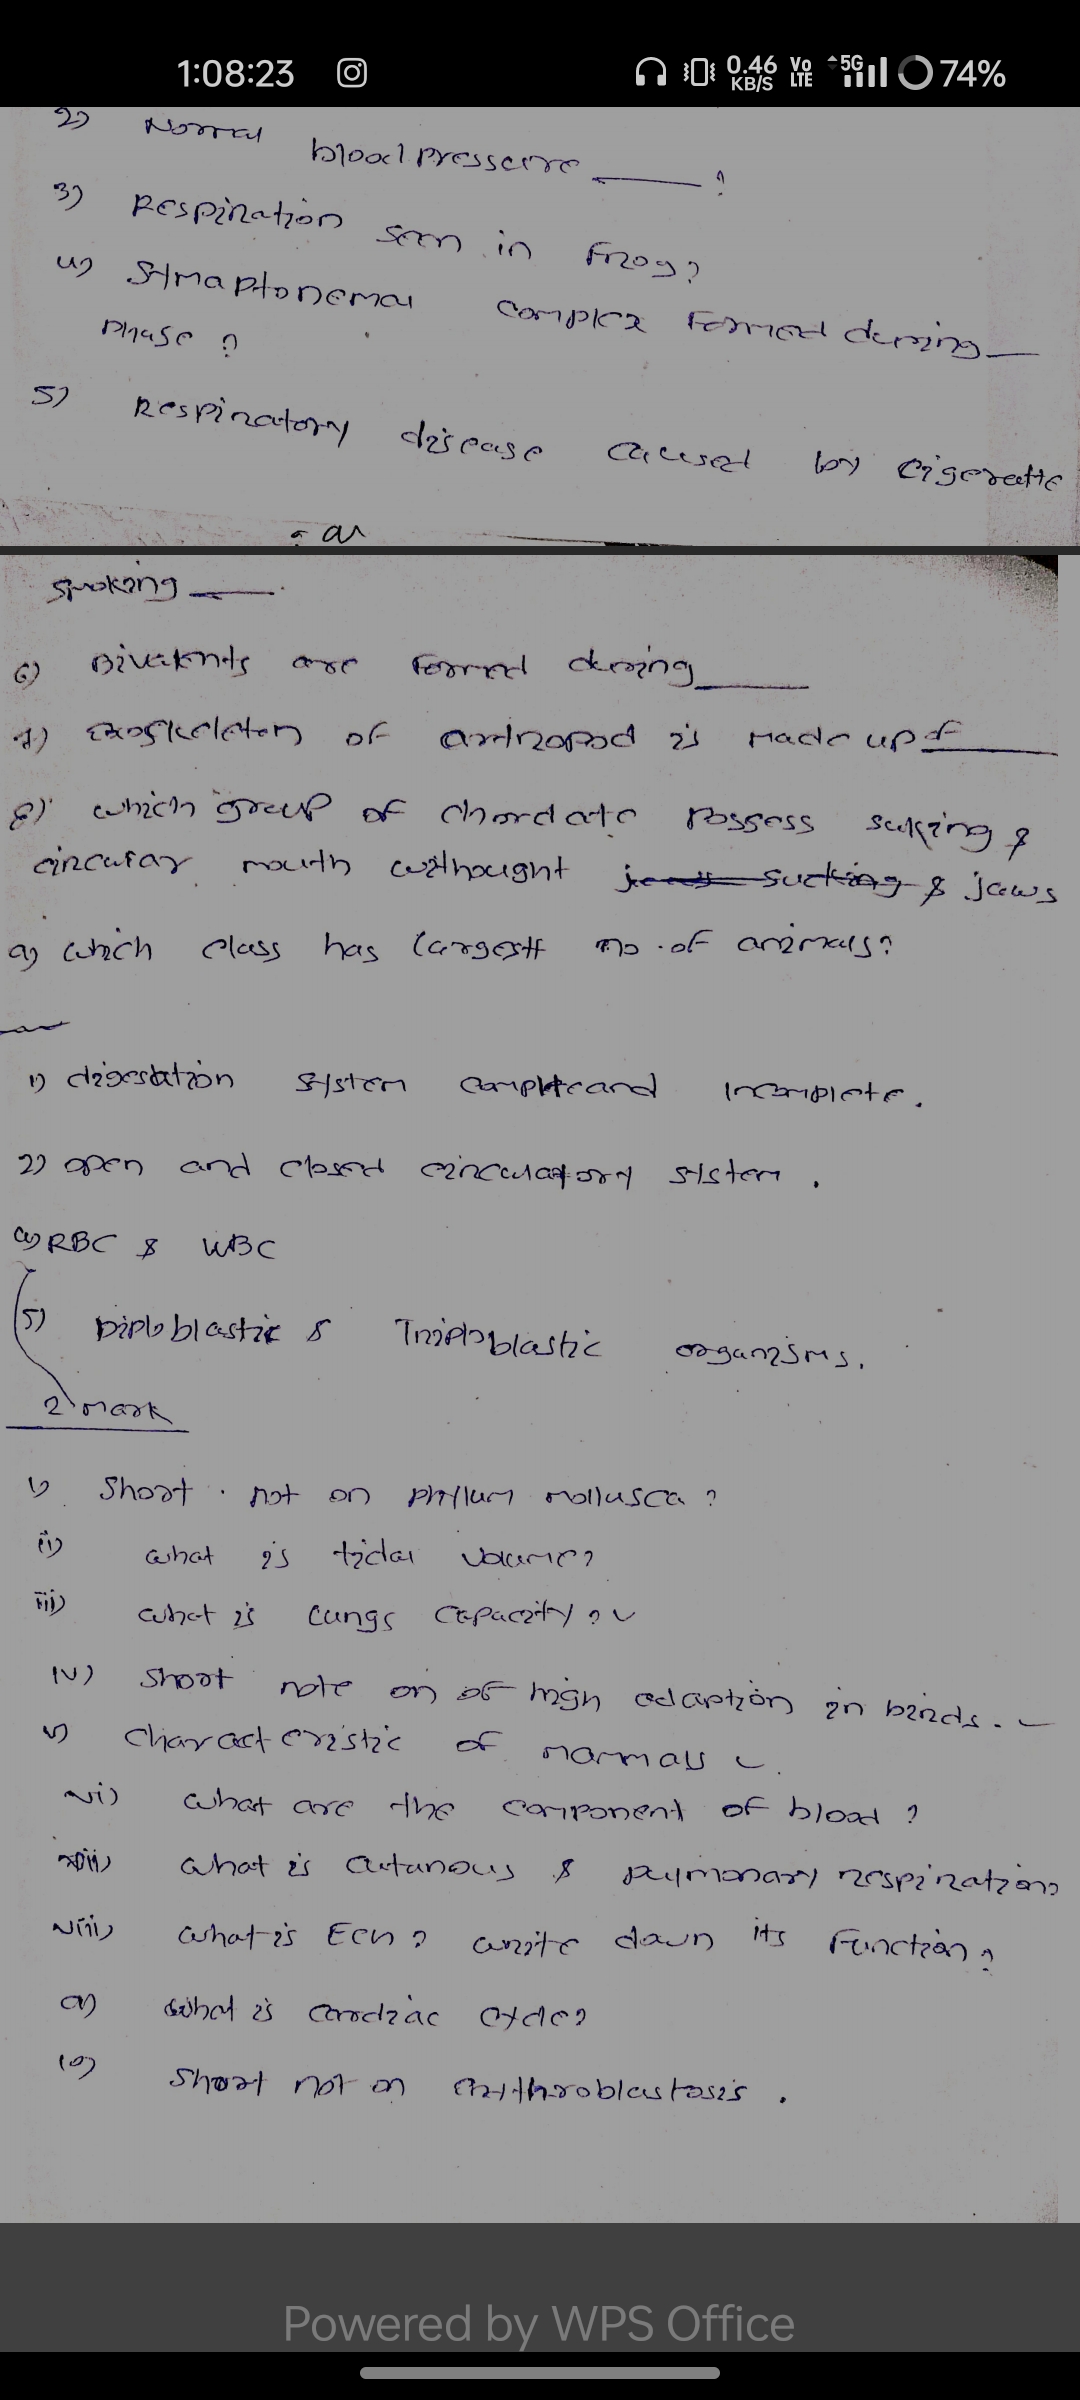 1:08:23 0.46 KB/S Vo LTE 5G 74%
2) Normal blood pressure ___?
3) Respiration seen in Frog?
4) Synaptonemal complex Formed during __
Phase ?
5) Respiratory disease caused by cigerette
smoking ___.
6) Bivalents are formed during ___
7) Exoskeleton of arthropod is made up of ___
8) which group of chordate possess sucking &
circular mouth withought & jaws
9) which class has largest no. of animals?
1) digestation system complete and incomplete.
2) open and closed circulatory system.
4) RBC & WBC
5) Diploblastic & Triploblastic organisms.
2 mark
i) Short not on phyllum mollusca ?
ii) what is tidal volume?
iii) what is lungs capacity?
iv) Short note on of high adaption in birds.
v) characteristic of mammals
vi) what are the component of blood ?
vii) what is cutanous & pulmonary respiration?
viii) what is ECG ? write down its Function?
9) what is cardiac cycle?
10) Short not on erythroblastosis.
Powered by WPS Office